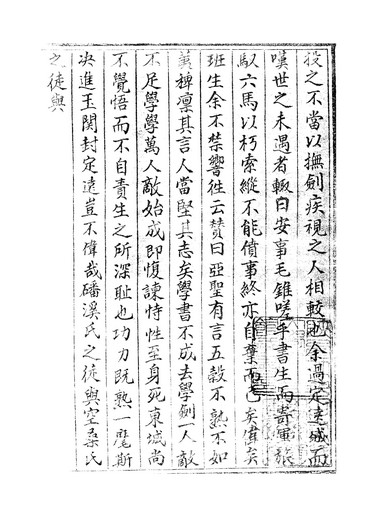 投之不當以撫劍疾視之人相較也余過定遠城而
嘆世之未遇者輙曰安事毛錐嗟乎書生而寄軍旅
馭六馬以朽索縱不能僨事終亦自棄而已矣偉矣
班生余不禁響徃云贊曰亞聖有言五穀不熟不如
荑稗凛其言人當堅其志矣學書不成去學劍一人敵
不足學學萬人敵始成即愎諫恃性至身死東城尚
不覺悟而不自責生之所深耻也功力既熟一麾斯
决進玉関封定遠豈不偉哉磻溪氏之徒與空桑氏
之徒與